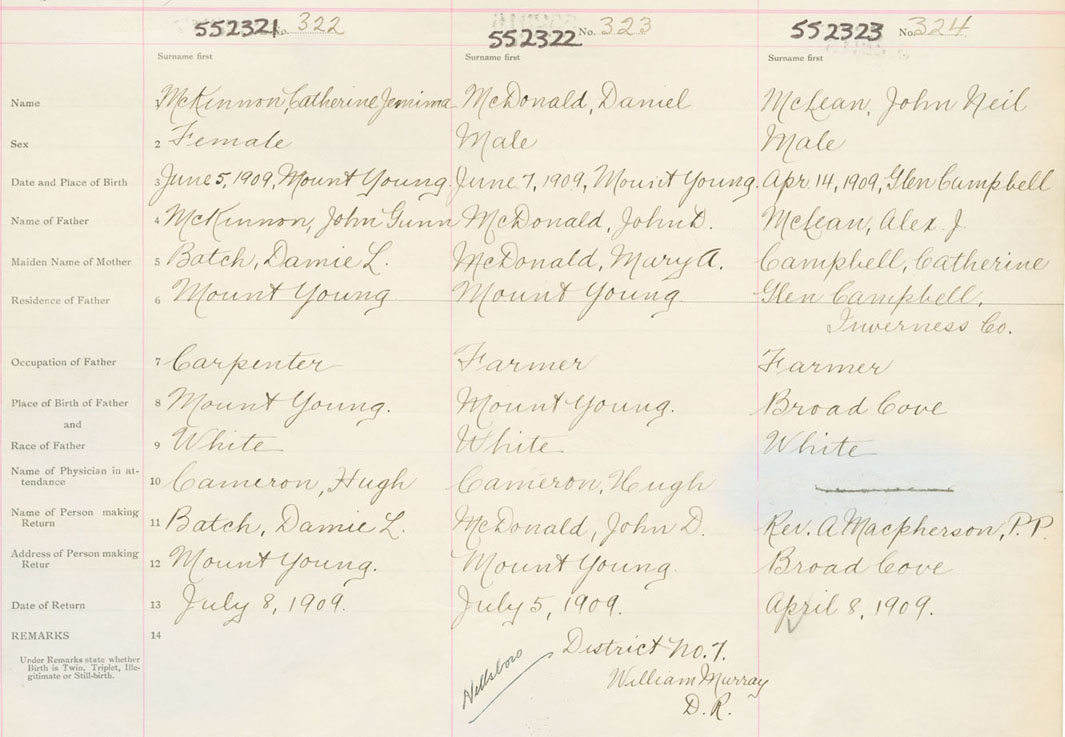 552321 No. 322 552322 No. 323 552323 No. 324
Surname first Surname first Surname first
Name 1 McKinnon, Catherine Jemima McDonald, Daniel McLean, John Neil
Sex 2 Female Male Male
Date and Place of Birth 3 June 5, 1909, Mount Young. June 7, 1909, Mount Young. Apr. 14, 1909, Glen Campbell
Name of Father 4 McKinnon, John Gunn McDonald, John D. McLean, Alex. J.
Maiden Name of Mother 5 Batch, Damie L. McDonald, Mary A. Campbell, Catherine
Residence of Father 6 Mount Young Mount Young Glen Campbell,
Inverness Co.
Occupation of Father 7 Carpenter Farmer Farmer
Place of Birth of Father 8 Mount Young. Mount Young. Broad Cove
and
Race of Father 9 White White White
Name of Physician in at-
tendance 10 Cameron, Hugh Cameron, Hugh
Name of Person making
Return 11 Batch, Damie L. McDonald, John D. Rev. A Macpherson, P.P.
Address of Person making
Retur 12 Mount Young. Mount Young. Broad Cove
Date of Return 13 July 8, 1909. July 5, 1909. April 8, 1909.
REMARKS 14
Under Remarks state whether
Birth is Twin, Triplet, Ille-
gitimate or Still-birth.
Hillsboro
District No. 7.
William Murray
D. R.